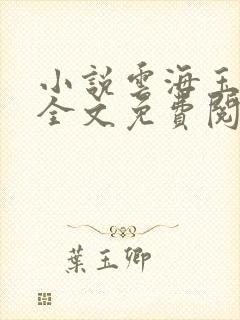 小說雲海玉
全文免費閱
葉玉卿